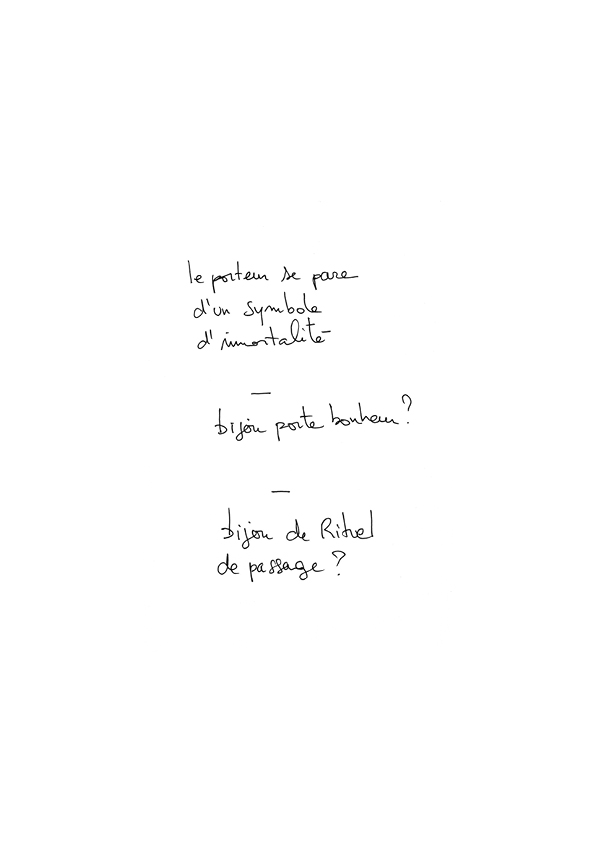 le porteur se pare
d'un symbole
d'immortalité
—
bijou porte bonheur?
—
bijou de Rituel
de passage ?